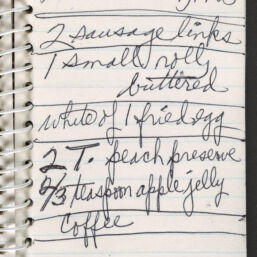 2 sausage links
1 small roll,
buttered
white of 1 fried egg
2 T. peach preserve
2/3 teaspoon apple jelly
Coffee